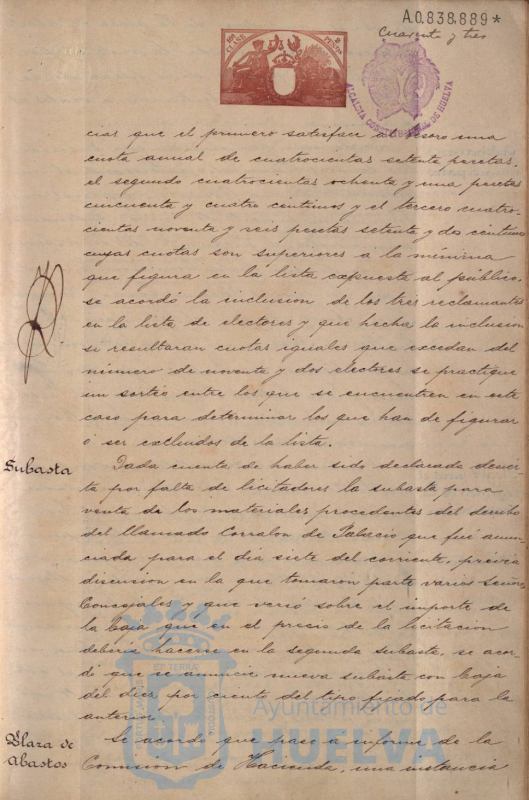 A.0.838.889*
Cuarenta y tres
10ª CLASE
2 PESETAS
ALCALDIA CONSTITUCIONAL DE HUELVA
cias que el primero satisface al Tesoro una
cuota anual de cuatrocientas setenta pesetas,
el segundo cuatrocientas ochenta y una pesetas
cincuenta y cuatro centimos y el tercero cuatro-
cientas noventa y seis pesetas setenta y dos centimos
cuyas cuotas son superiores a la minima
que figura en la lista expuesta al publico,
se acordó la inclusion de los tres reclamantes
en la lista de electores y que hecha la inclusion
si resultaran cuotas iguales que excedan del
número de noventa y dos electores se practique
un sorteo entre los que se encuentren en este
caso para determinar los que han de figurar
ó ser excluidos de la lista.
Subasta
Dada cuenta de haber sido declarada desier-
ta por falta de licitadores la subasta para
venta de los materiales procedentes del derribo
del llamado Corralon de Palacio que fué anun-
ciada para el dia siete del corriente, prévia
discusion en la que tomaron parte varios Señores
Concejales y que versó sobre el importe de
la baja que en el precio de la licitacion
deberia hacerse en la segunda subasta, se acor-
dó que se anuncie nueva subasta con baja
del diez por ciento del tipo fijado para la
anterior.
Plaza de
Abastos
Se acordó que pase a informe de la
Comision de Hacienda, una instancia
Ayuntamiento de
HUELVA